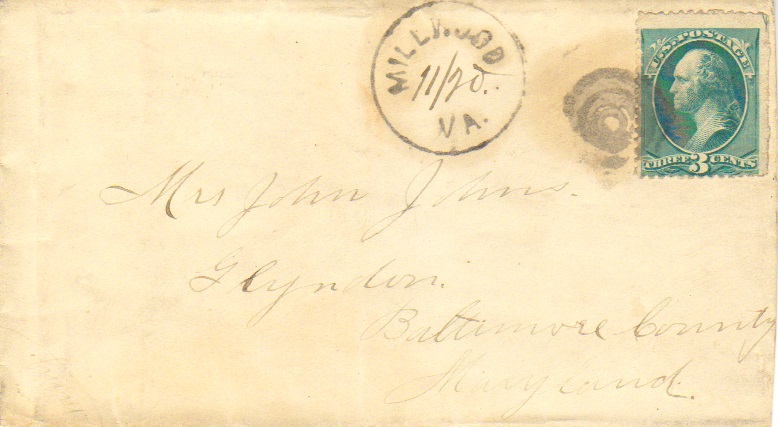 MILLWOOD
11/20.
VA.
U.S. POSTAGE
THREE 3 CENTS
Mrs John Johns.
Glyndon.
Baltimore County
Maryland.